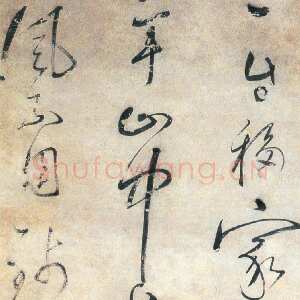 移家
年山中
風不用
Shufawang.CN